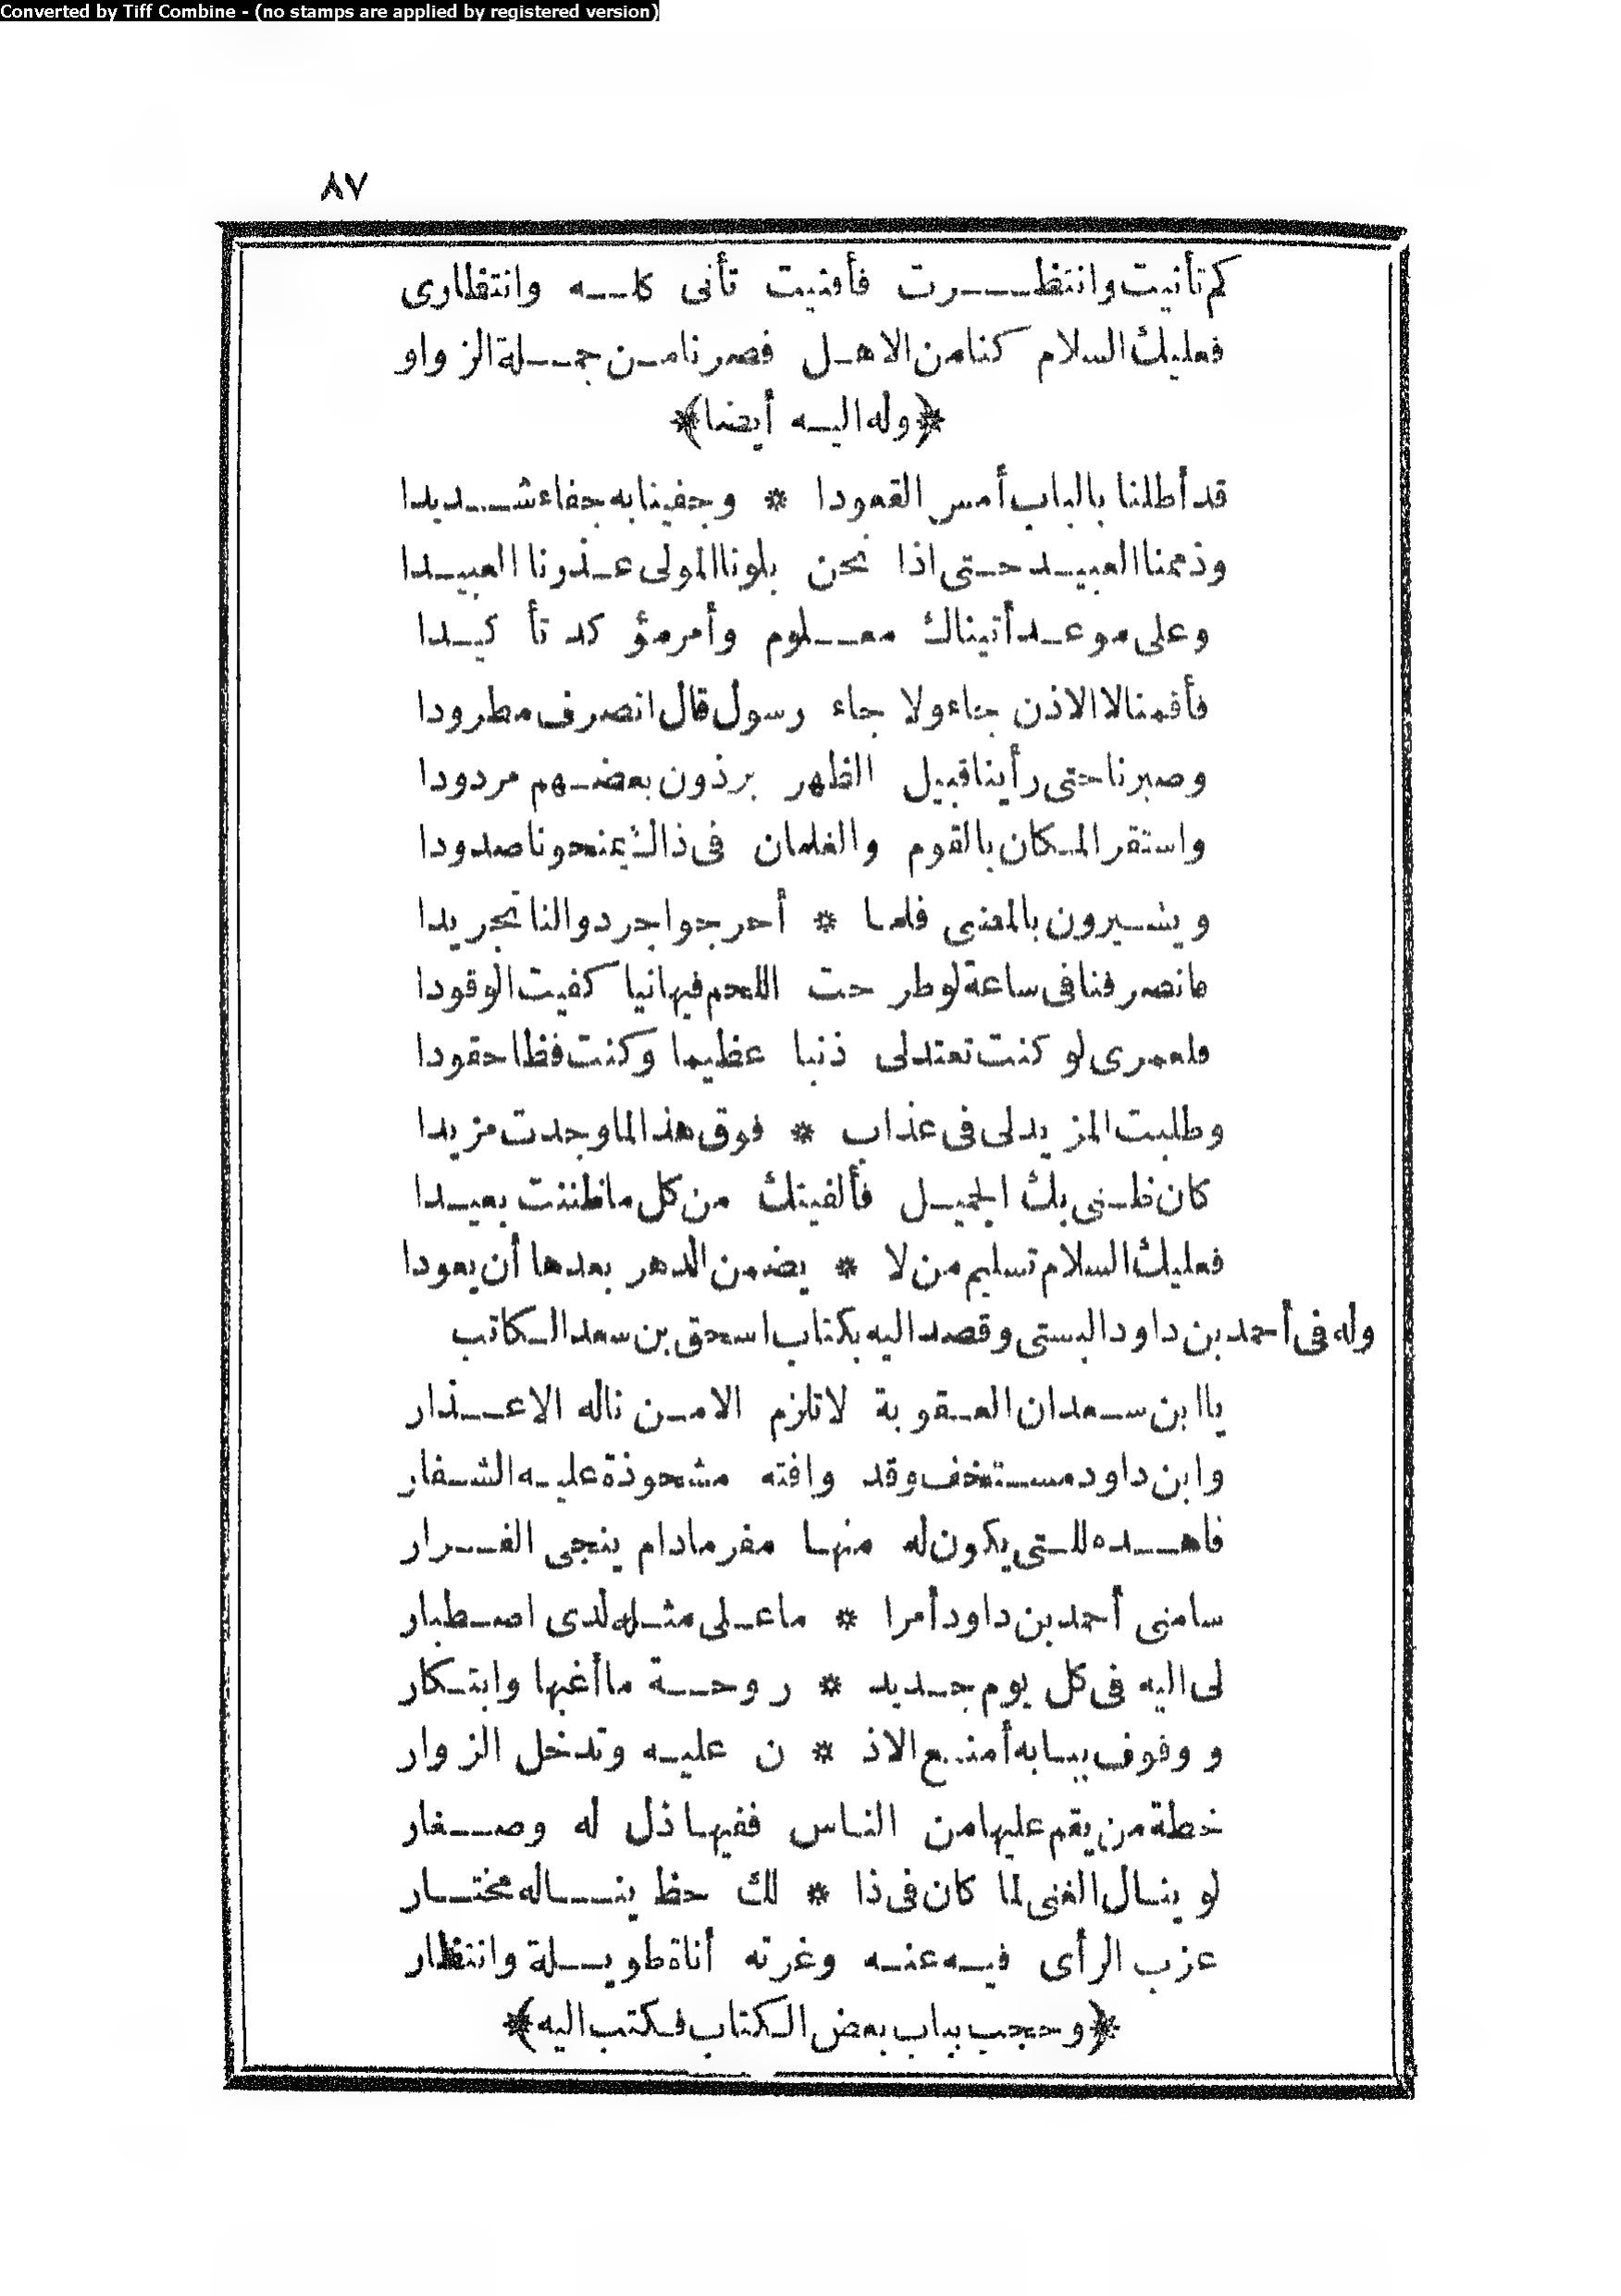 Converted by Tiff Combine - (no stamps are applied by registered version)
٨٧
كم تأنيت وانتظرت فأفنيت تأنى كله وانتظارى
فعليك السلام كنا من الاهل فصرنا من جملة الزواو
﴿وله اليه أيضا﴾
قد أطلنا بالباب أمس القعودا * وجفينا به جفاء شديدا
وذممنا العبيد حتى اذا نحن بلونا المولى عذرنا العبيدا
وعلى موعد أتيناك معلوم وأمر مؤكد تأكيدا
فأقمنا لا الاذن جاء ولا جاء رسول قال انصرف مطرودا
وصبرنا حتى رأينا قبيل الظهر برذون بعضهم مردودا
واستقر المكان بالقوم والغلمان فى ذاك يمنحونا صدودا
ويشيرون بالمضى فلما * أحرجوا جردوا لنا تجريدا
فانصرفنا فى ساعة لو طرحت اللحم فيها نيا كفيت الوقودا
فلعمرى لو كنت تعتد لى ذنبا عظيما وكنت فظا حقودا
وطلبت المزيد لى فى عذاب * فوق هذا لما وجدت مزيدا
كان ظنى بك الجميل فألفيتك من كل ما ظننت بعيدا
فعليك السلام تسليم من لا * يضمن الدهر بعدها أن يعودا
وله فى أحمد بن داود البستى وقصد اليه بكتاب اسحق بن سعد الكاتب
يا ابن سعد ان العقوبة لا تلزم الا من ناله الاعذار
وابن داود مستخف وقد وافته مشحوذة عليه الشفار
فاهده للتى يكون له منها مفر مادام ينجى الفرار
سامنى أحمد بن داود أمرا * ما على مثله لدى اصطبار
لى اليه فى كل يوم جديد * روحة ما أغبها وابتكار
ووقوف ببابه أمنع الاذ * ن عليه وتدخل الزوار
خطة من يقم عليها من الناس ففيها ذل له وصغار
لو ينال الغنى لما كان فى ذا * لك حظ يناله مختار
عزب الرأى فيه عنه وغرته أناة طويلة وانتظار
﴿وحجب بباب بعض الكتاب فكتب اليه﴾